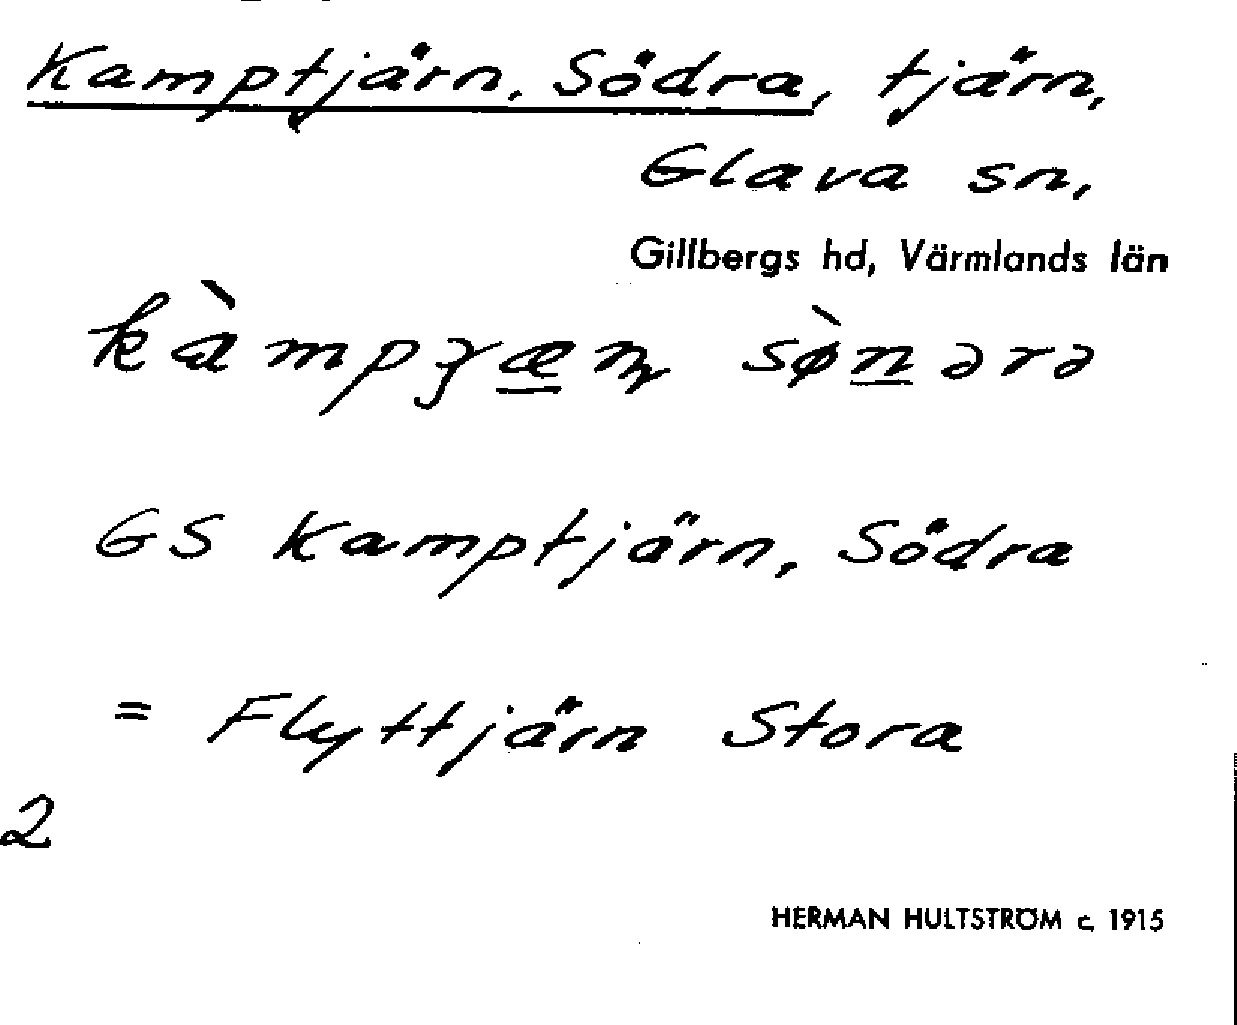 Kamptjärn, Södra, tjärn,
Glava sn,
Gillbergs hd, Värmlands län
GS Kamptjärn, Södra
= Flyttjärn Stora
2
HERMAN HULTSTRÖM c. 1915